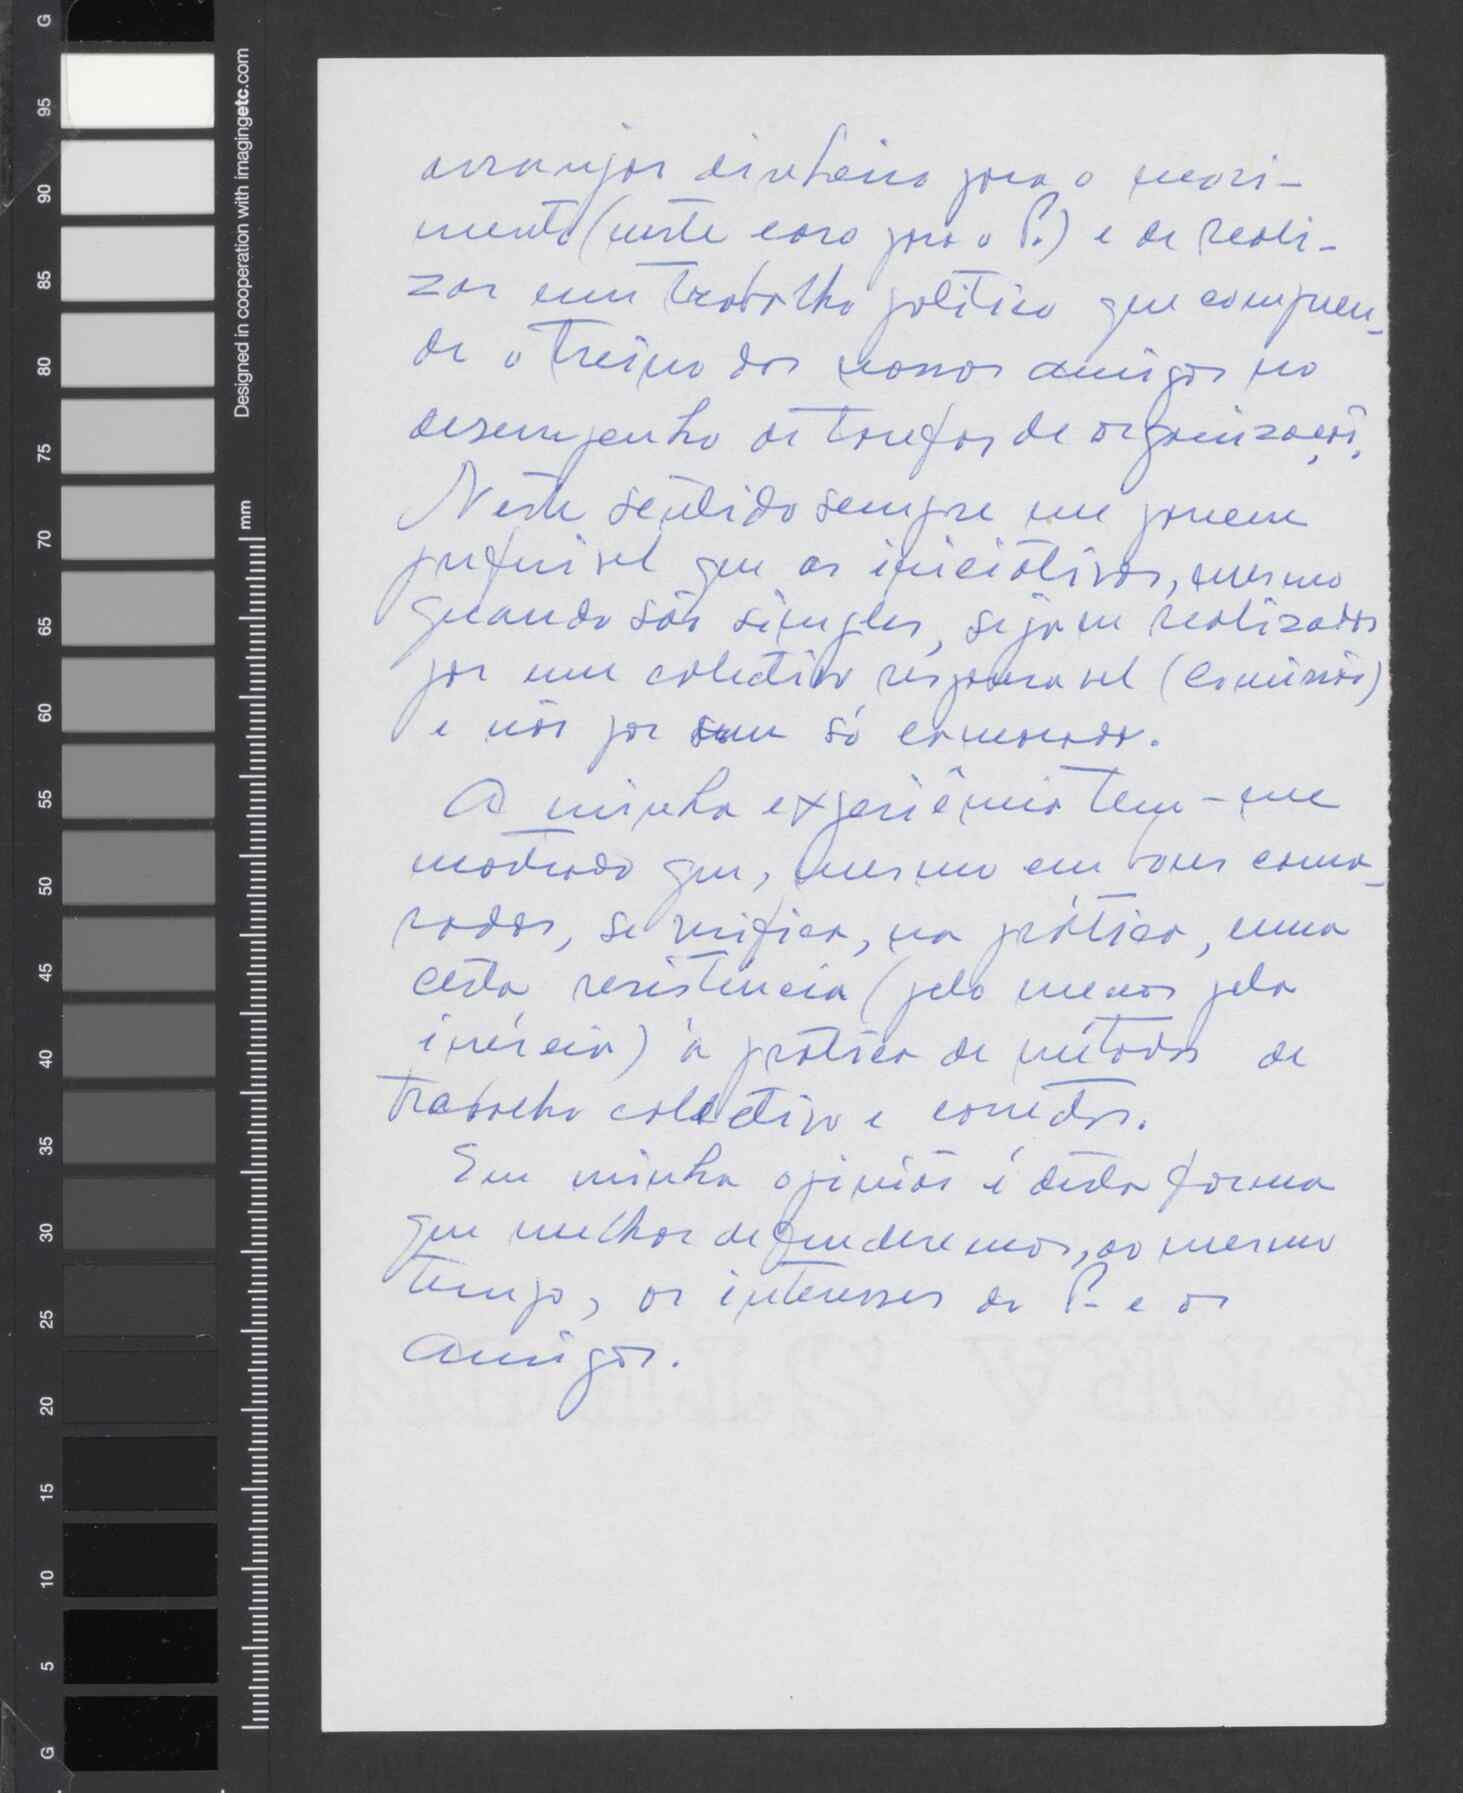 arranjar dinheiro para o movi-
mento (neste caso para o P.) e de reali-
zar um trabalho politico que compreen-
de o treino dos nossos amigos no
desempenho de tarefas de organização.
Neste sentido sempre me parece
preferivel que as iniciativas, mesmo
quando são simples, sejam realizadas
por um colectivo responsavel (Comissão)
e não por um só camarada.
A minha experiência tem-me
mostrado que, mesmo em bons cama-
radas, se verifica, na prática, uma
certa resistência (pelo menos pela
inércia) à prática de métodos de
trabalho colectivo e correctos.
Em minha opinião é desta forma
que melhor defenderemos, ao mesmo
tempo, os interesses do P. e os
amigos.
Designed in cooperation with imagingetc.com
mm
G
95
90
85
80
75
70
65
60
55
50
45
40
35
30
25
20
15
10
5
G